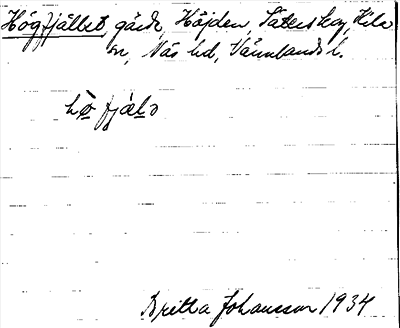 Högfjället, gård, Höjden, Säterskog, Kila
sn, Näs hd, Värmlands l.
hö̀ fjälə
Britta Johansson 1934